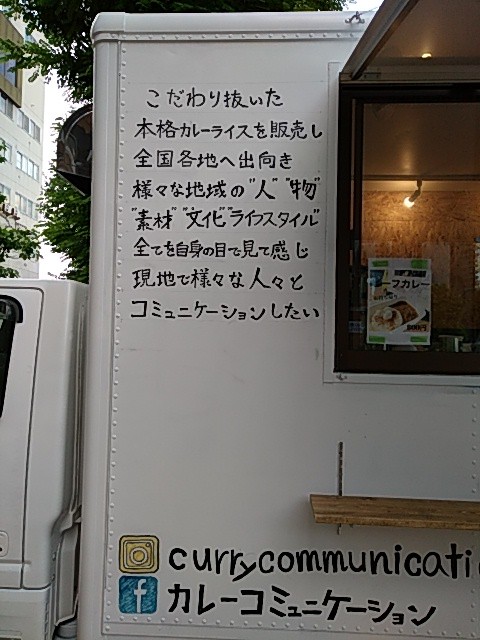 こだわり抜いた
本格カレーライスを販売し
全国各地へ出向き
様々な地域の"人" "物"
"素材" "文化" "ライフスタイル"
全てを自身の目で見て感じ
現地で様々な人々と
コミュニケーションしたい
ーフカレー
currycommunicati
カレーコミュニケーション